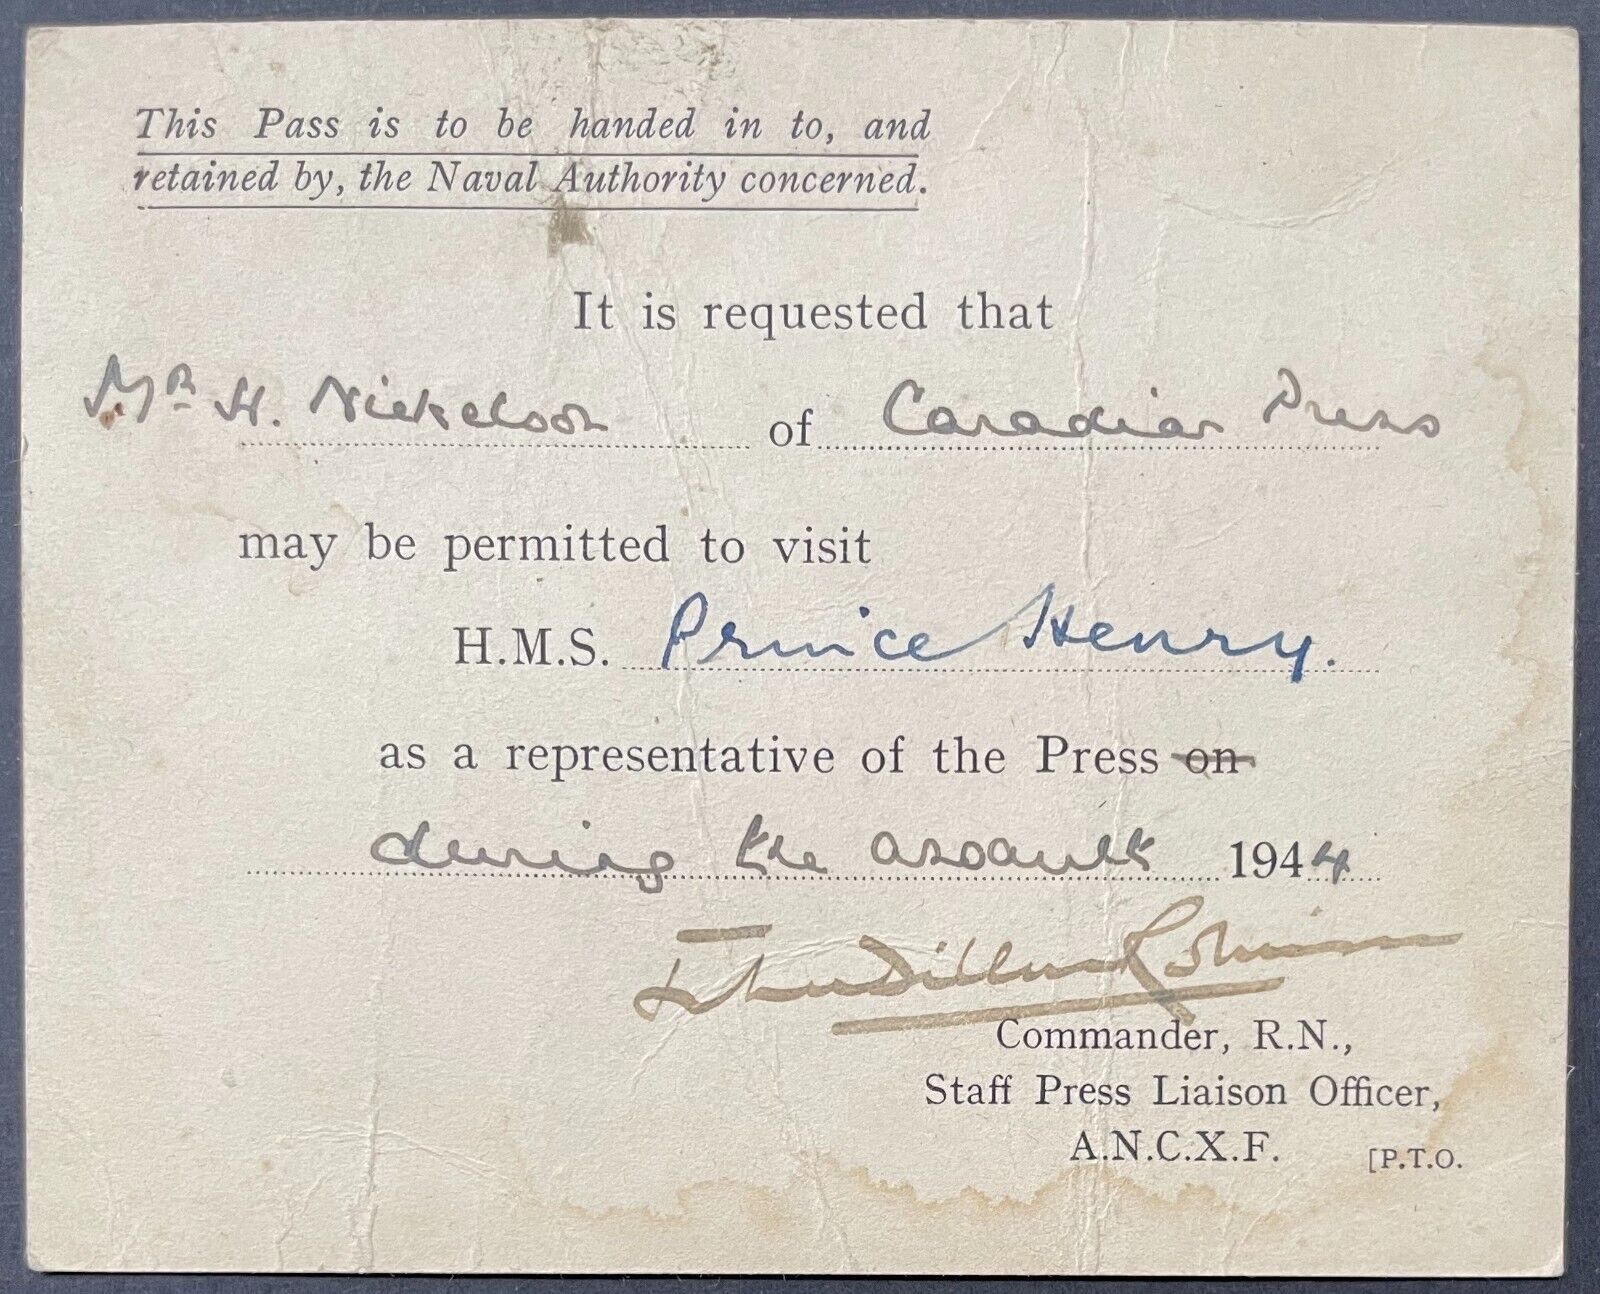 This Pass is to be handed in to, and
retained by, the Naval Authority concerned.
It is requested that
Mr H. Nickelson of Canadian Press
may be permitted to visit
H.M.S. Prince Henry.
as a representative of the Press on
during the assault 1944
Commander, R.N.,
Staff Press Liaison Officer,
A.N.C.X.F. [P.T.O.